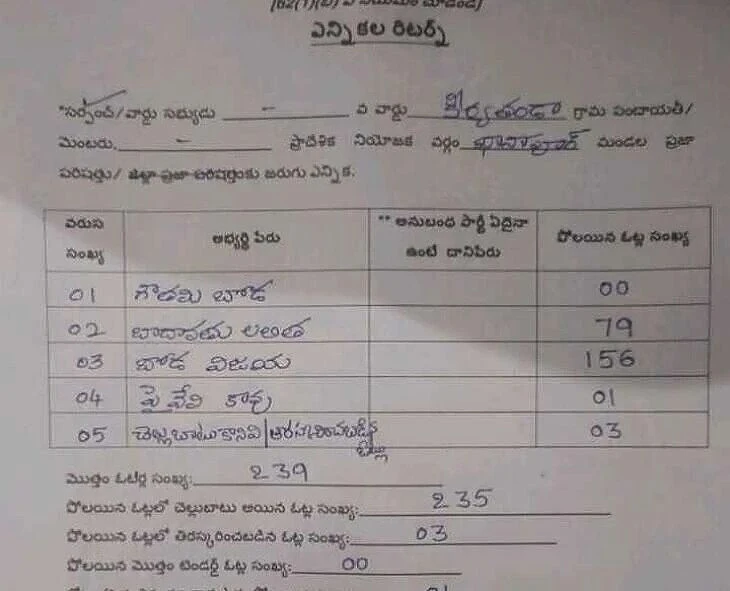 ఎన్నికల రిటర్న్
*సర్పంచ్/వార్డు సభ్యుడు - వ వార్డు తండా గ్రామ పంచాయతీ/
మెంబరు, - ప్రాదేశిక నియోజక వర్గం ఖానాపూర్ మండల ప్రజా
పరిషత్తు/ జిల్లా ప్రజా పరిషత్తుకు జరుగు ఎన్నిక.
వరుస సంఖ్య అభ్యర్థి పేరు ** అనుబంధ పార్టీ ఏదైనా ఉంటే దానిపేరు పోలయిన ఓట్ల సంఖ్య
01 గౌతమి బోడ 00
02 బాదావతు లలిత 79
03 బోడ విజయ 156
04 పై వేవి కావు 01
05 చెల్లుబాటుకానివి/తిరస్కరించబడిన ఓట్లు 03
మొత్తం ఓటర్ల సంఖ్య: 239
పోలయిన ఓట్లలో చెల్లుబాటు అయిన ఓట్ల సంఖ్య: 235
పోలయిన ఓట్లలో తిరస్కరించబడిన ఓట్ల సంఖ్య: 03
పోలయిన మొత్తం టెండర్డ్ ఓట్ల సంఖ్య: 00